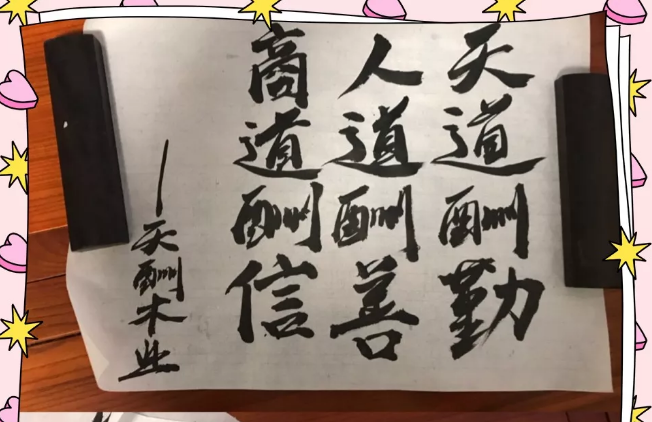 天道酬勤
人道酬善
商道酬信
—天酬木业